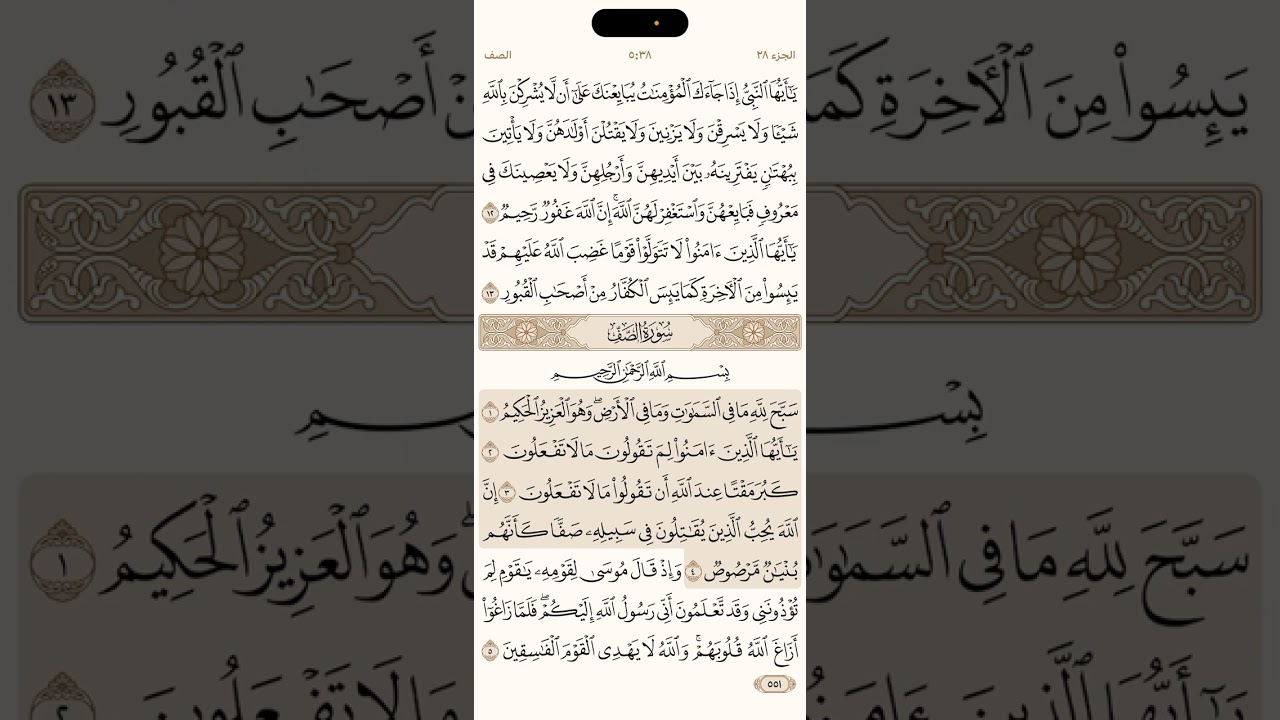 الجزء ٢٨ ٥:٣٨ الصف
يَٰٓأَيُّهَا ٱلنَّبِيُّ إِذَا جَآءَكَ ٱلْمُؤْمِنَٰتُ يُبَايِعْنَكَ عَلَىٰٓ أَن لَّا يُشْرِكْنَ بِٱللَّهِ
شَيْـًٔا وَلَا يَسْرِقْنَ وَلَا يَزْنِينَ وَلَا يَقْتُلْنَ أَوْلَٰدَهُنَّ وَلَا يَأْتِينَ
بِبُهْتَٰنٍ يَفْتَرِينَهُۥ بَيْنَ أَيْدِيهِنَّ وَأَرْجُلِهِنَّ وَلَا يَعْصِينَكَ فِي
مَعْرُوفٍ فَبَايِعْهُنَّ وَٱسْتَغْفِرْ لَهُنَّ ٱللَّهَۚ إِنَّ ٱللَّهَ غَفُورٌ رَّحِيمٌ ١٢
يَٰٓأَيُّهَا ٱلَّذِينَ ءَامَنُوا۟ لَا تَتَوَلَّوْا۟ قَوْمًا غَضِبَ ٱللَّهُ عَلَيْهِمْ قَدْ
يَئِسُوا۟ مِنَ ٱلْـَٔاخِرَةِ كَمَا يَئِسَ ٱلْكُفَّارُ مِنْ أَصْحَٰبِ ٱلْقُبُورِ ١٣
سُورَةُ الصَّفِّ
بِسْمِ ٱللَّهِ ٱلرَّحْمَٰنِ ٱلرَّحِيمِ
سَبَّحَ لِلَّهِ مَا فِي ٱلسَّمَٰوَٰتِ وَمَا فِي ٱلْأَرْضِۖ وَهُوَ ٱلْعَزِيزُ ٱلْحَكِيمُ ١
يَٰٓأَيُّهَا ٱلَّذِينَ ءَامَنُوا۟ لِمَ تَقُولُونَ مَا لَا تَفْعَلُونَ ٢
كَبُرَ مَقْتًا عِندَ ٱللَّهِ أَن تَقُولُوا۟ مَا لَا تَفْعَلُونَ ٣ إِنَّ
ٱللَّهَ يُحِبُّ ٱلَّذِينَ يُقَٰتِلُونَ فِي سَبِيلِهِۦ صَفًّا كَأَنَّهُم
بُنْيَٰنٌ مَّرْصُوصٌ ٤ وَإِذْ قَالَ مُوسَىٰ لِقَوْمِهِۦ يَٰقَوْمِ لِمَ
تُؤْذُونَنِي وَقَد تَّعْلَمُونَ أَنِّي رَسُولُ ٱللَّهِ إِلَيْكُمْۖ فَلَمَّا زَاغُوٓا۟
أَزَاغَ ٱللَّهُ قُلُوبَهُمْۚ وَٱللَّهُ لَا يَهْدِي ٱلْقَوْمَ ٱلْفَٰسِقِينَ ٥
٥٥١